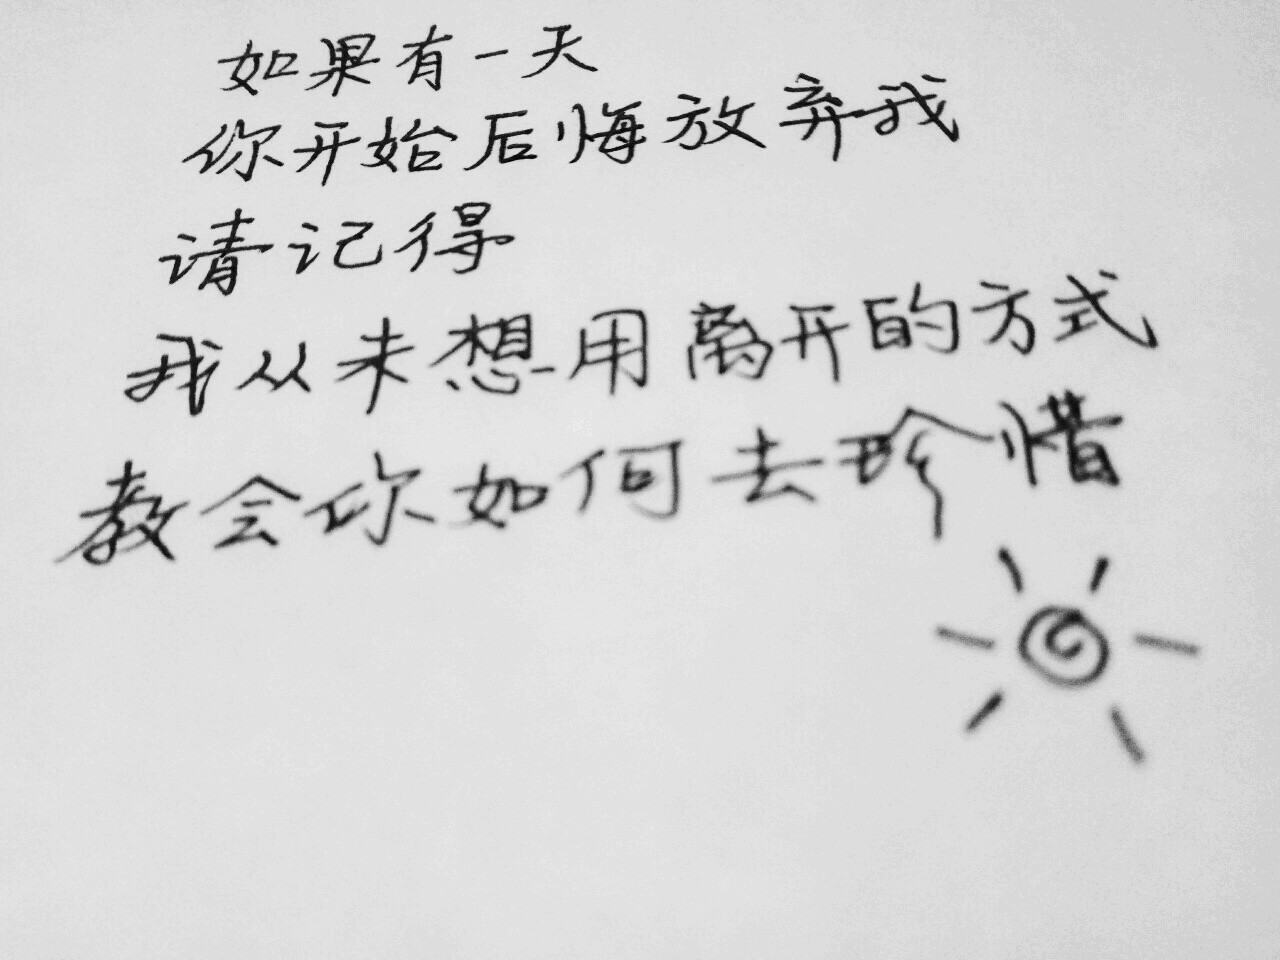 如果有一天
你开始后悔放弃我
请记得
我从未想用离开的方式
教会你如何去珍惜